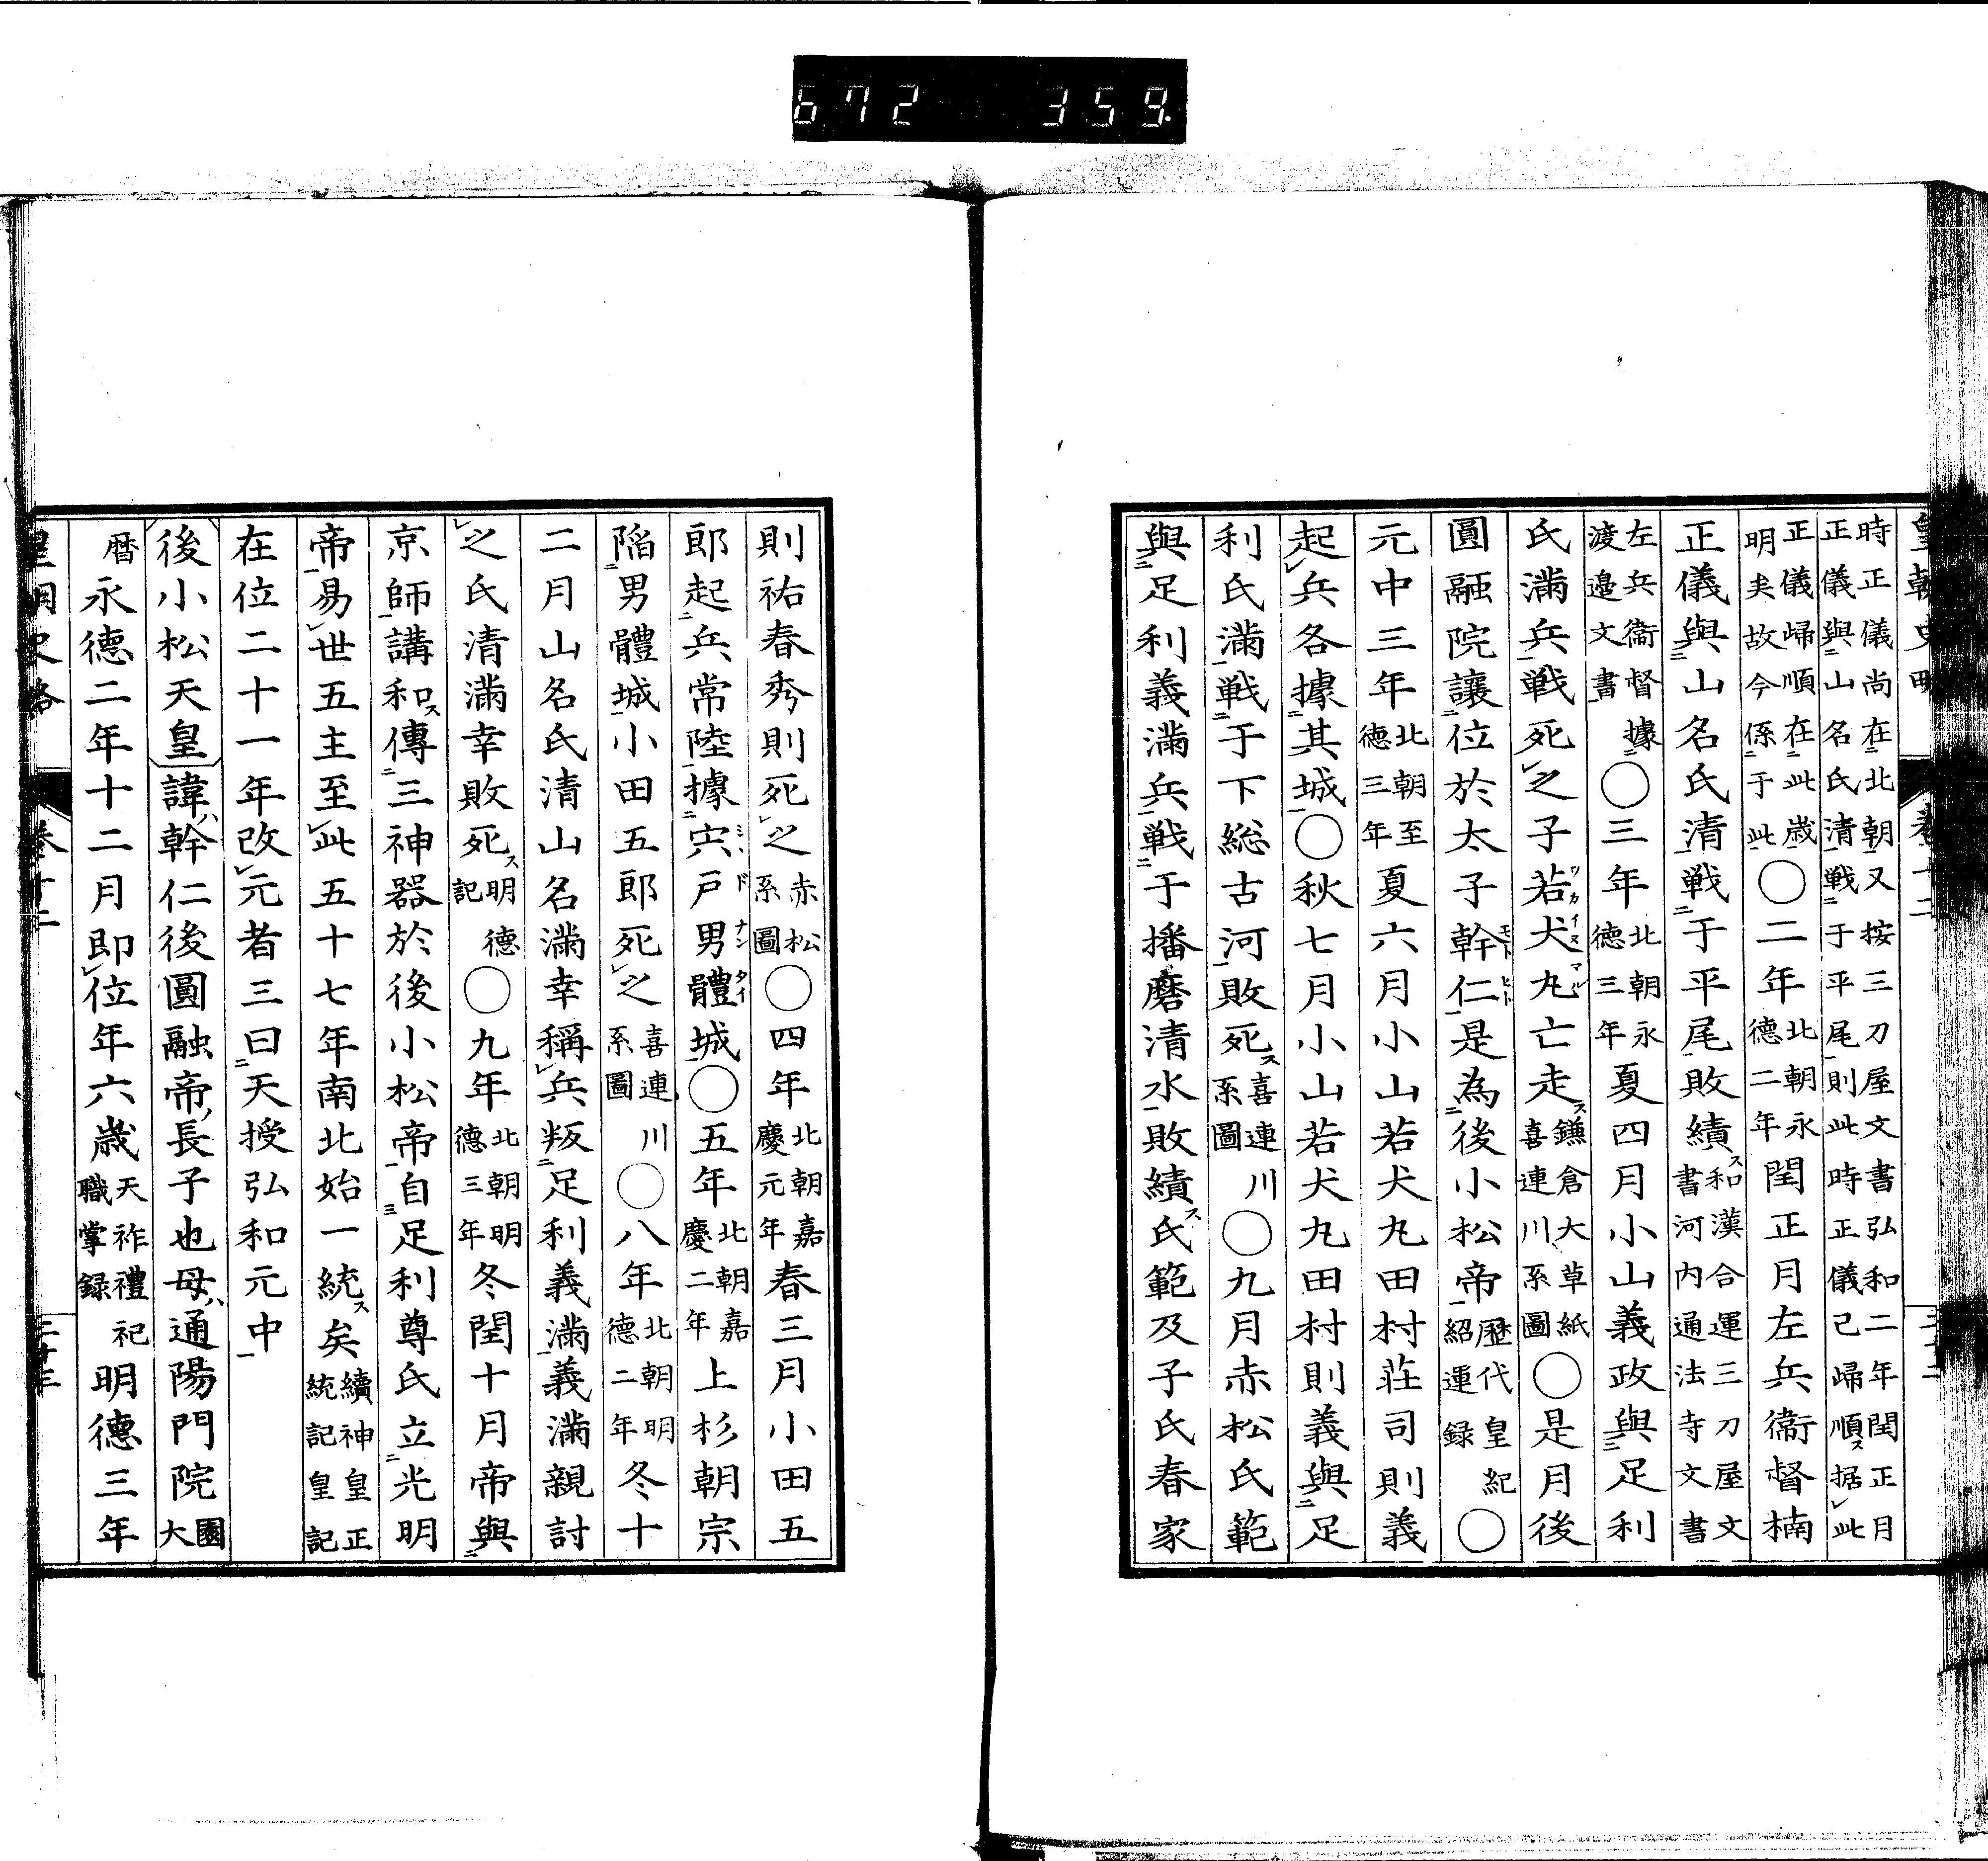 672 359.
皇朝史略 卷十二
時正儀尚在北朝又按三刀屋文書弘和二年閏正月
正儀與山名氏清戰于平尾則此時正儀已歸順ス据此
正儀歸順在此歲
明矣故今係于此〇二年北朝永德二年閏正月左兵衞督楠
正儀與山名氏清戰于平尾敗績ス和漢合運三刀屋文書河内通法寺文書
左兵衞督據渡邉文書〇三年北朝永德三年夏四月小山義政與足利
氏滿兵戰死之子若犬丸ワカイヌマル亡走ス鎌倉大草紙喜連川系圖〇是月後
圓融院讓位於太子幹仁モトヒト是為後小松帝歷代皇紀紹運録〇
元中三年北朝至德三年夏六月小山若犬丸田村莊司則義
起兵各據其城〇秋七月小山若犬丸田村則義與足
利氏滿戰于下総古河敗死ス喜連川系圖〇九月赤松氏範
與足利義滿兵戰于播磨清水敗績ス氏範及子氏春家
則祐春秀則死之赤松系圖〇四年北朝嘉慶元年春三月小田五
郎起兵常陸據宍戸シヽド男體ナンタイ城〇五年北朝嘉慶二年上杉朝宗
陷男體城小田五郎死之喜連川系圖〇八年北朝明德二年冬十
二月山名氏清山名滿幸稱兵叛足利義滿義滿親討
之氏清滿幸敗死ス明德記〇九年北朝明德三年冬閏十月帝與
京師講和ス傳三神器於後小松帝自足利尊氏立光明
帝易世五主至此五十七年南北始一統ス矣續神皇正統記皇記
在位二十一年改元者三曰天授弘和元中
後小松天皇諱ハ幹仁後圓融帝ノ長子也母ハ通陽門院園大
曆永德二年十二月即位年六歲天祚禮祀職掌録明德三年
卷十二